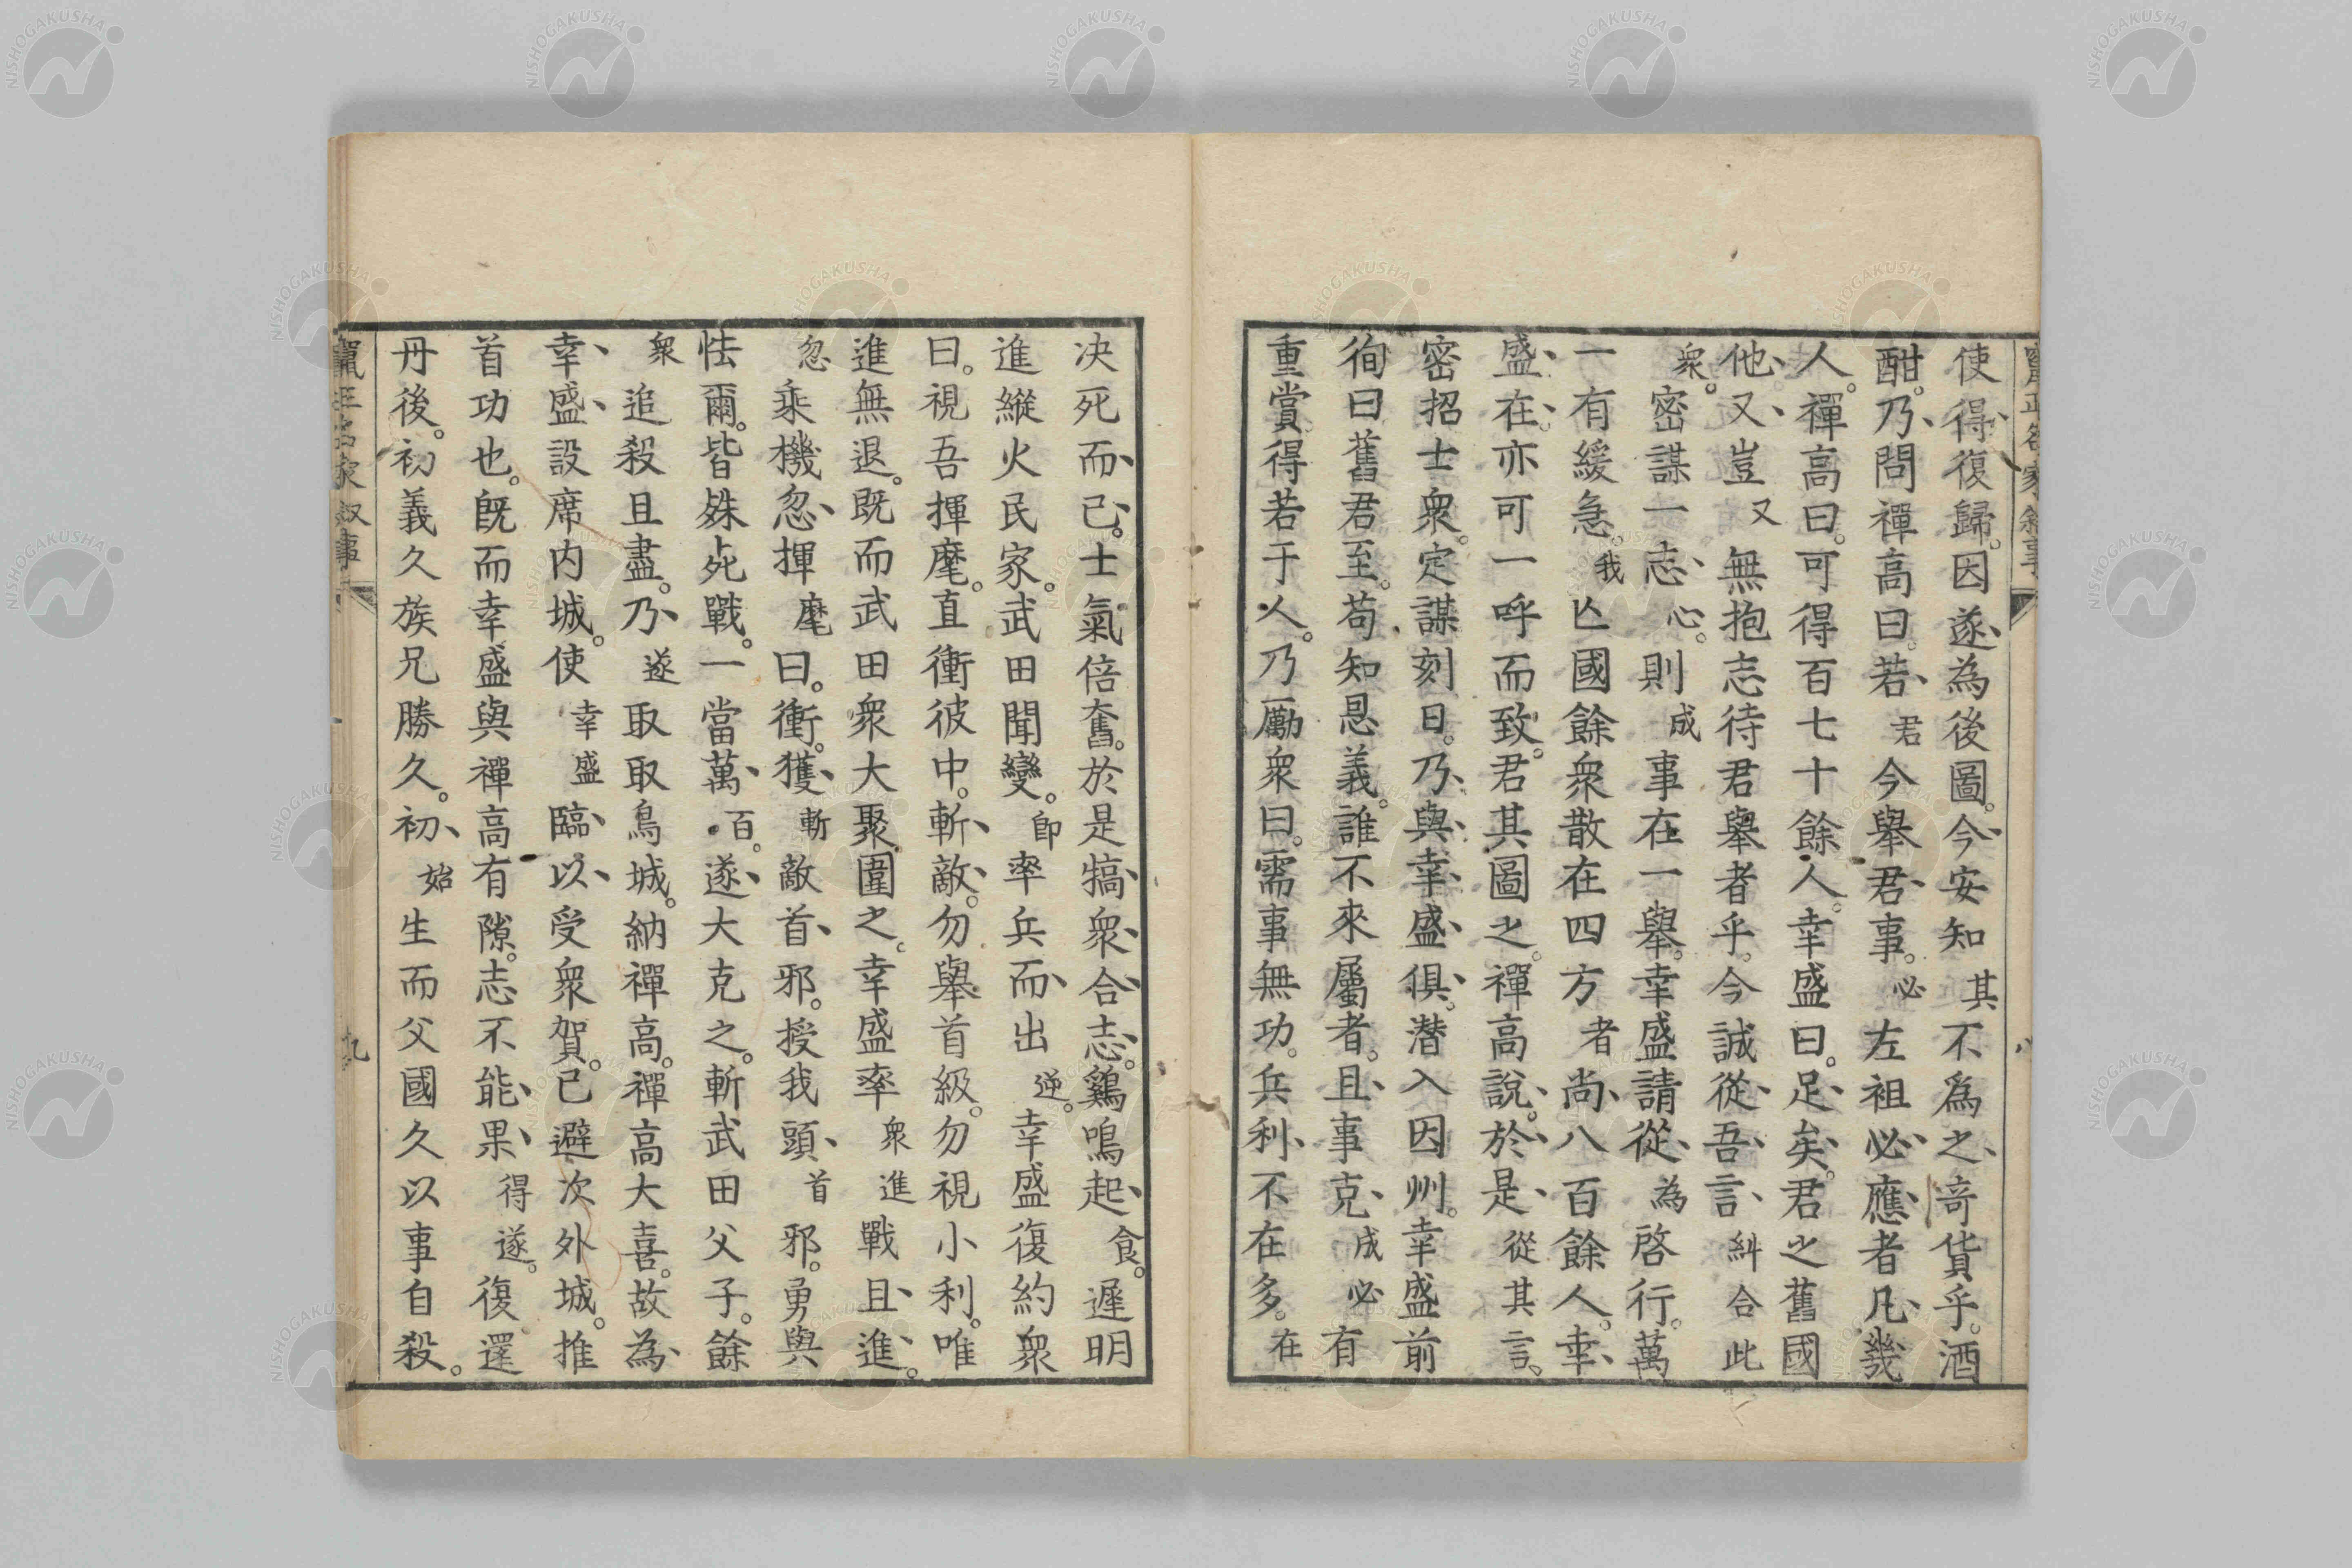 使得復歸。因遂為後圖。今安知其不為之奇貨乎。酒
酣。乃問禪高曰。若君今舉君事。必左袒必應者凡幾
人。禪高曰。可得百七十餘人。幸盛曰。足矣。君之舊國
他又豈又無抱志待君舉者乎。今誠從吾言糾合此
衆。密謀一志心。則成事在一舉。幸盛請從為啓行。萬
一有緩急。我亾國餘衆散在四方者尚八百餘人。幸
盛在亦可一呼而致。君其圖之。禪高說。於是從其言。
密招士衆。定謀刻日。乃與幸盛俱。潛入因州。幸盛前
徇曰。舊君至。苟知恩義。誰不來屬者。且事克成必有
重賞。得若干人。乃勵衆曰。需事無功。兵利不在多。在
決死而已。士氣倍奮。於是犒衆合志。鷄鳴起食。遲明
進縱火民家。武田聞變。卽率兵而出逆。幸盛復約衆
曰。視吾揮麾。直衝彼中。斬敵。勿舉首級。勿視小利。唯
進無退。既而武田衆大聚圍之。幸盛率衆進戰且進。
忽乘機忽揮麾曰。衝。獲斬敵首邪。授我頭首邪。勇與
怯爾。皆殊死戰。一當萬百。遂大克之。斬武田父子。餘
衆追殺且盡。乃遂取取鳥城。納禪高。禪高大喜。故為
幸盛設席內城。使幸盛臨以受衆賀。已避次外城。推
首功也。既而幸盛與禪高有隙。志不能果得遂。復還
丹後。初義久族兄勝久。初始生而父國久以事自殺。
竄正名家叙事
九
竄正名家叙事